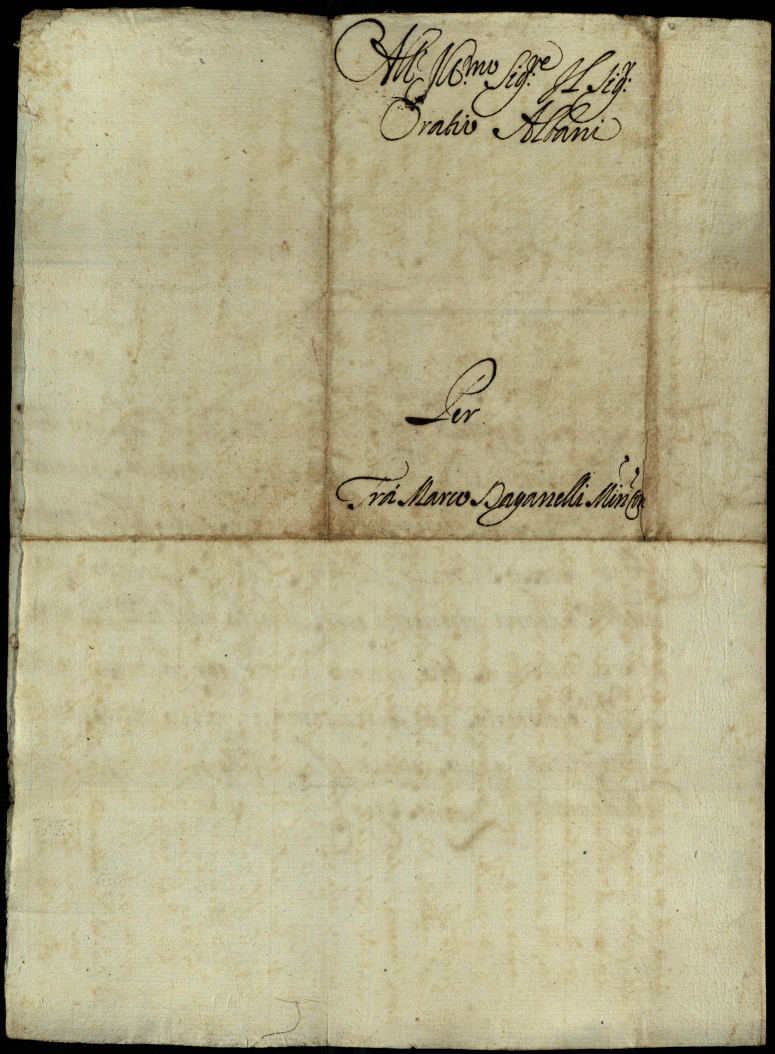 All' Ill.mo Sig.re Il Sig.r
Oratio Albani
Per
Frà Marco Paganelli Min. Con